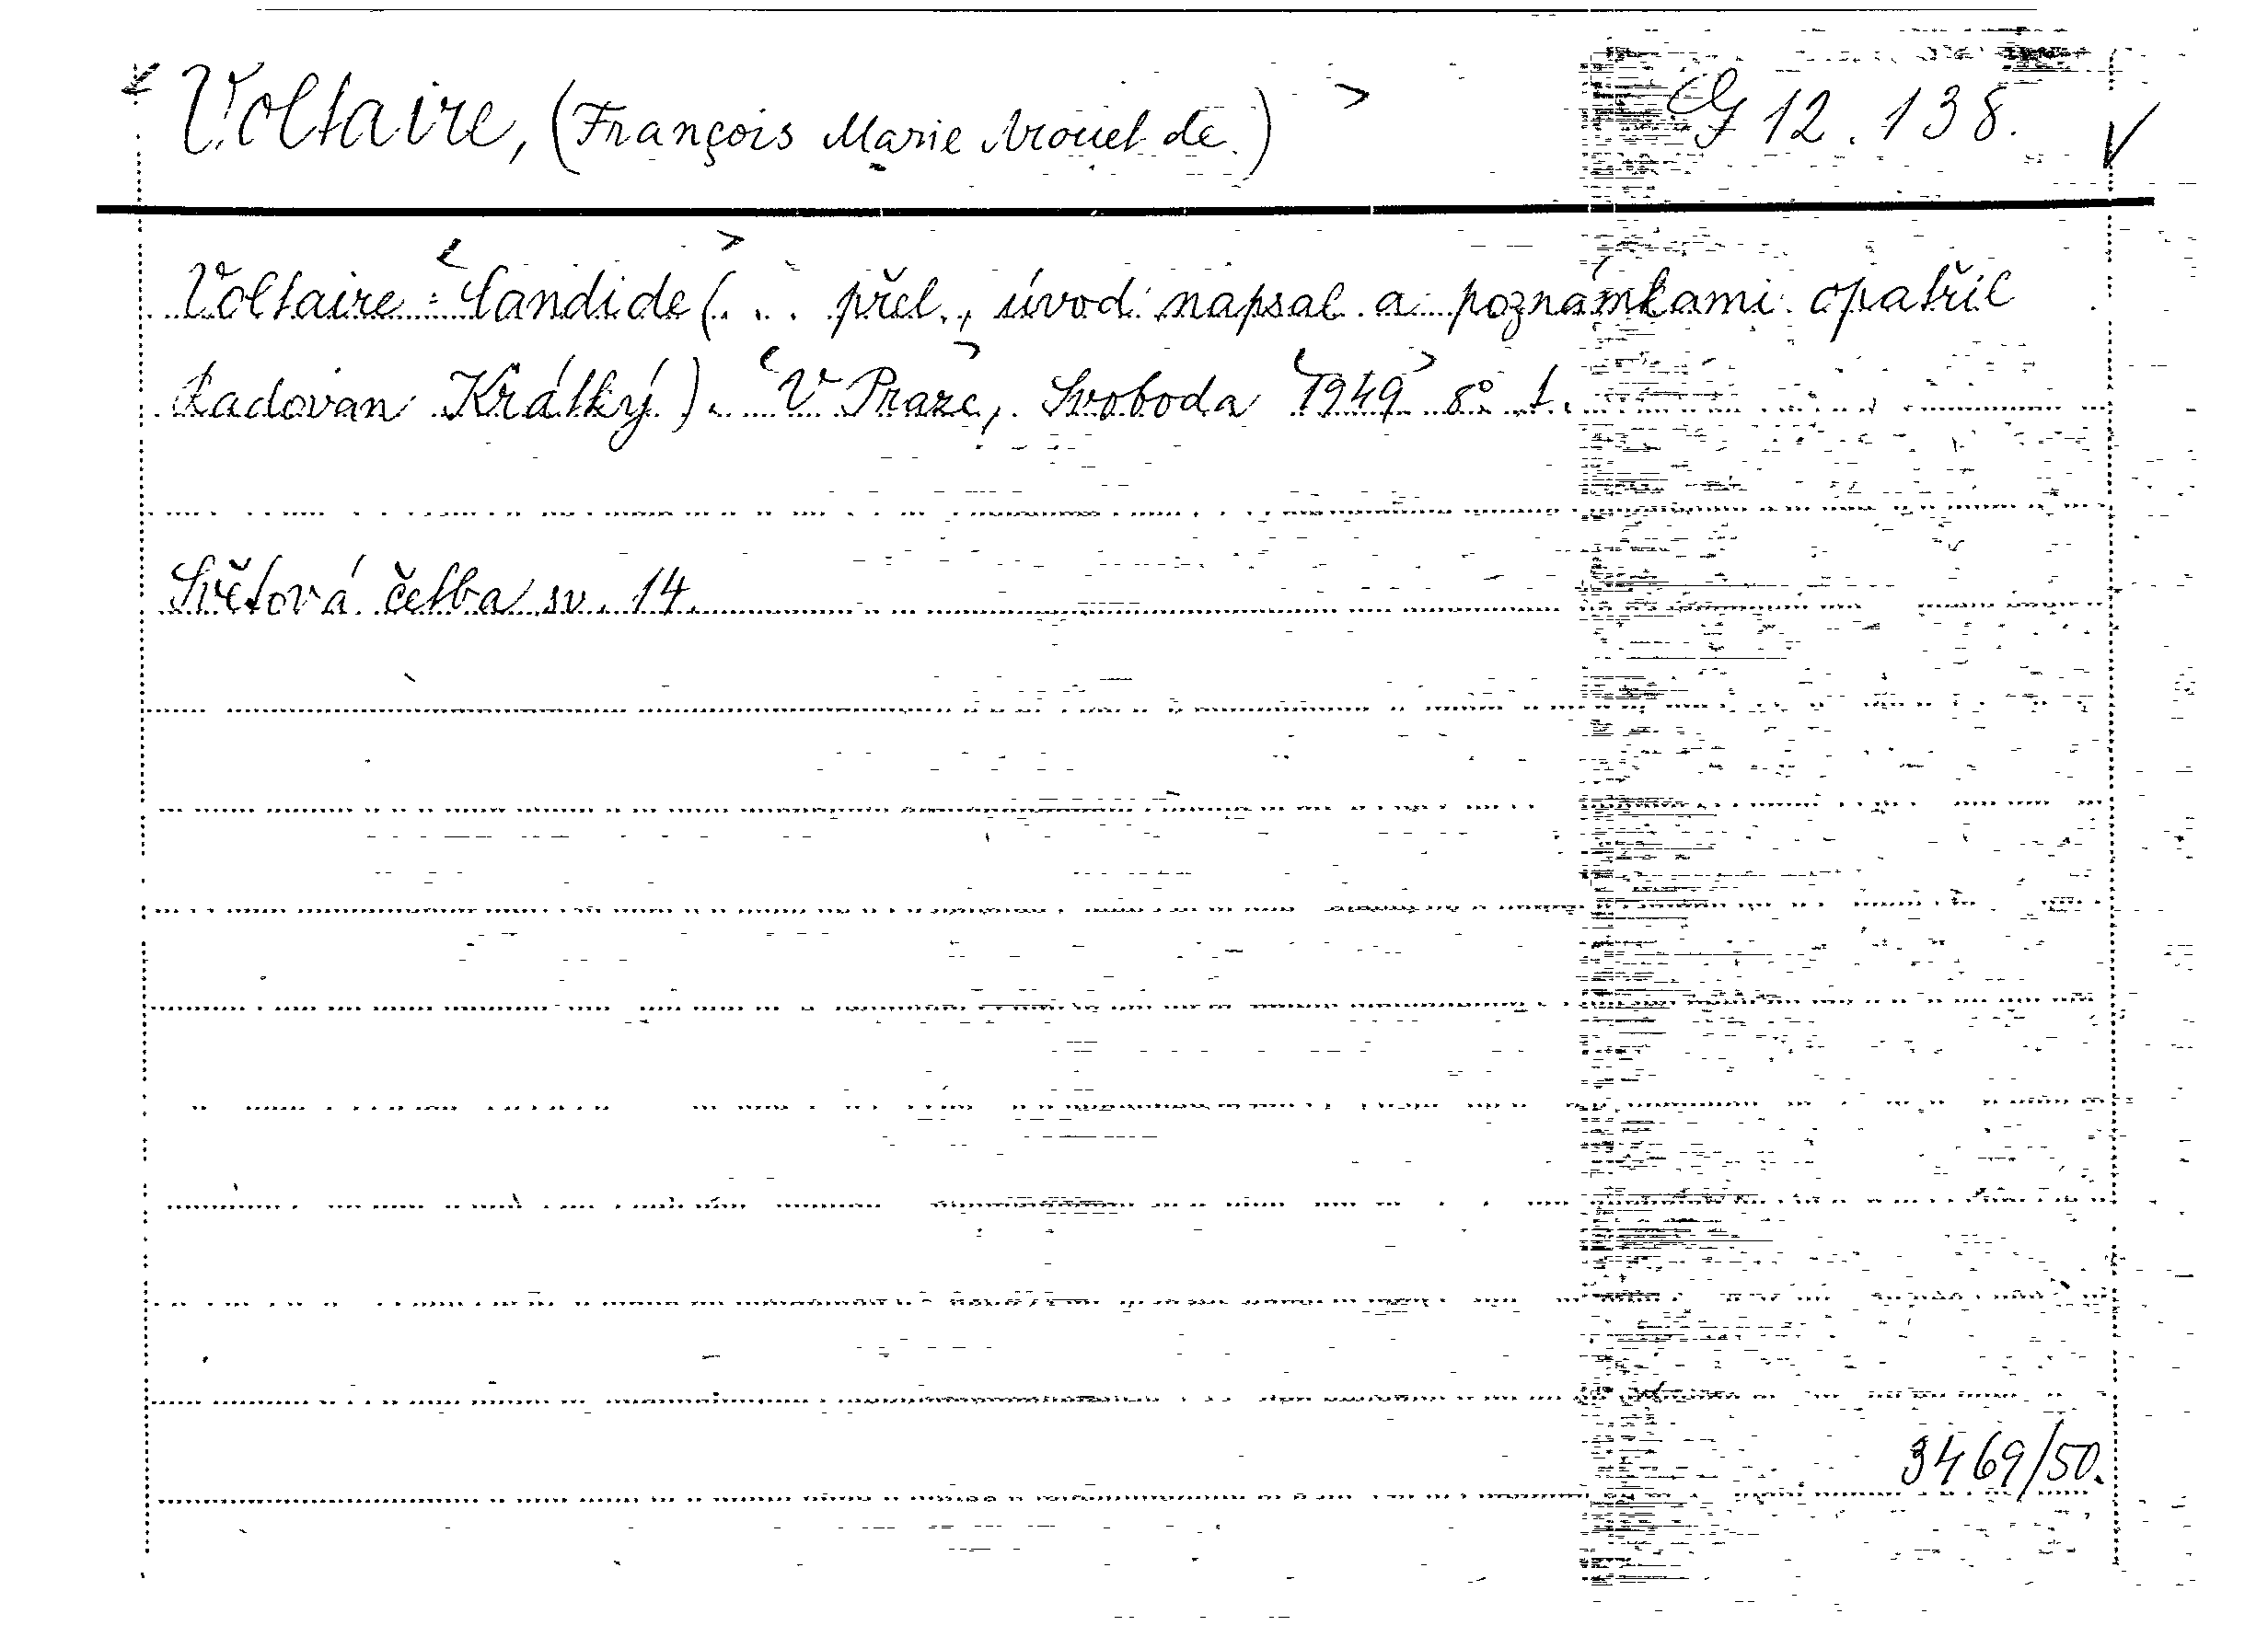 Voltaire, (François Marie Arouet de.) G 12.138.
Voltaire: Candide (... přel., úvod napsal a poznámkami opatřil
Radovan Krátký). V Praze, Svoboda 1949 8° 1.
Světová četba sv. 14.
3469/50.